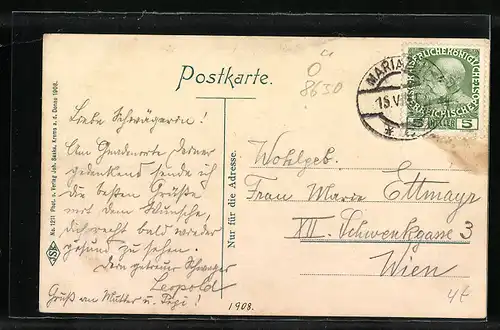 Postkarte.
O
8630
MARIA
15.V
5
No. 1211 Phot. u. Verlag Joh. Saska, Krems a. d. Donau 1908.
Liebe Schwägerin!
Am Gnadenorte Deiner
gedenkend sende ich
die besten Grüße
mit dem Wunsche,
dich recht bald wieder
gesund zu sehen.
Dein getreuer Schwager
Leopold
Gruß an Mutter u. Pepi!
Nur für die Adresse.
Wohlgeb.
Frau Marie Ettmayr
XII. Schwenkgasse 3
Wien
1908.